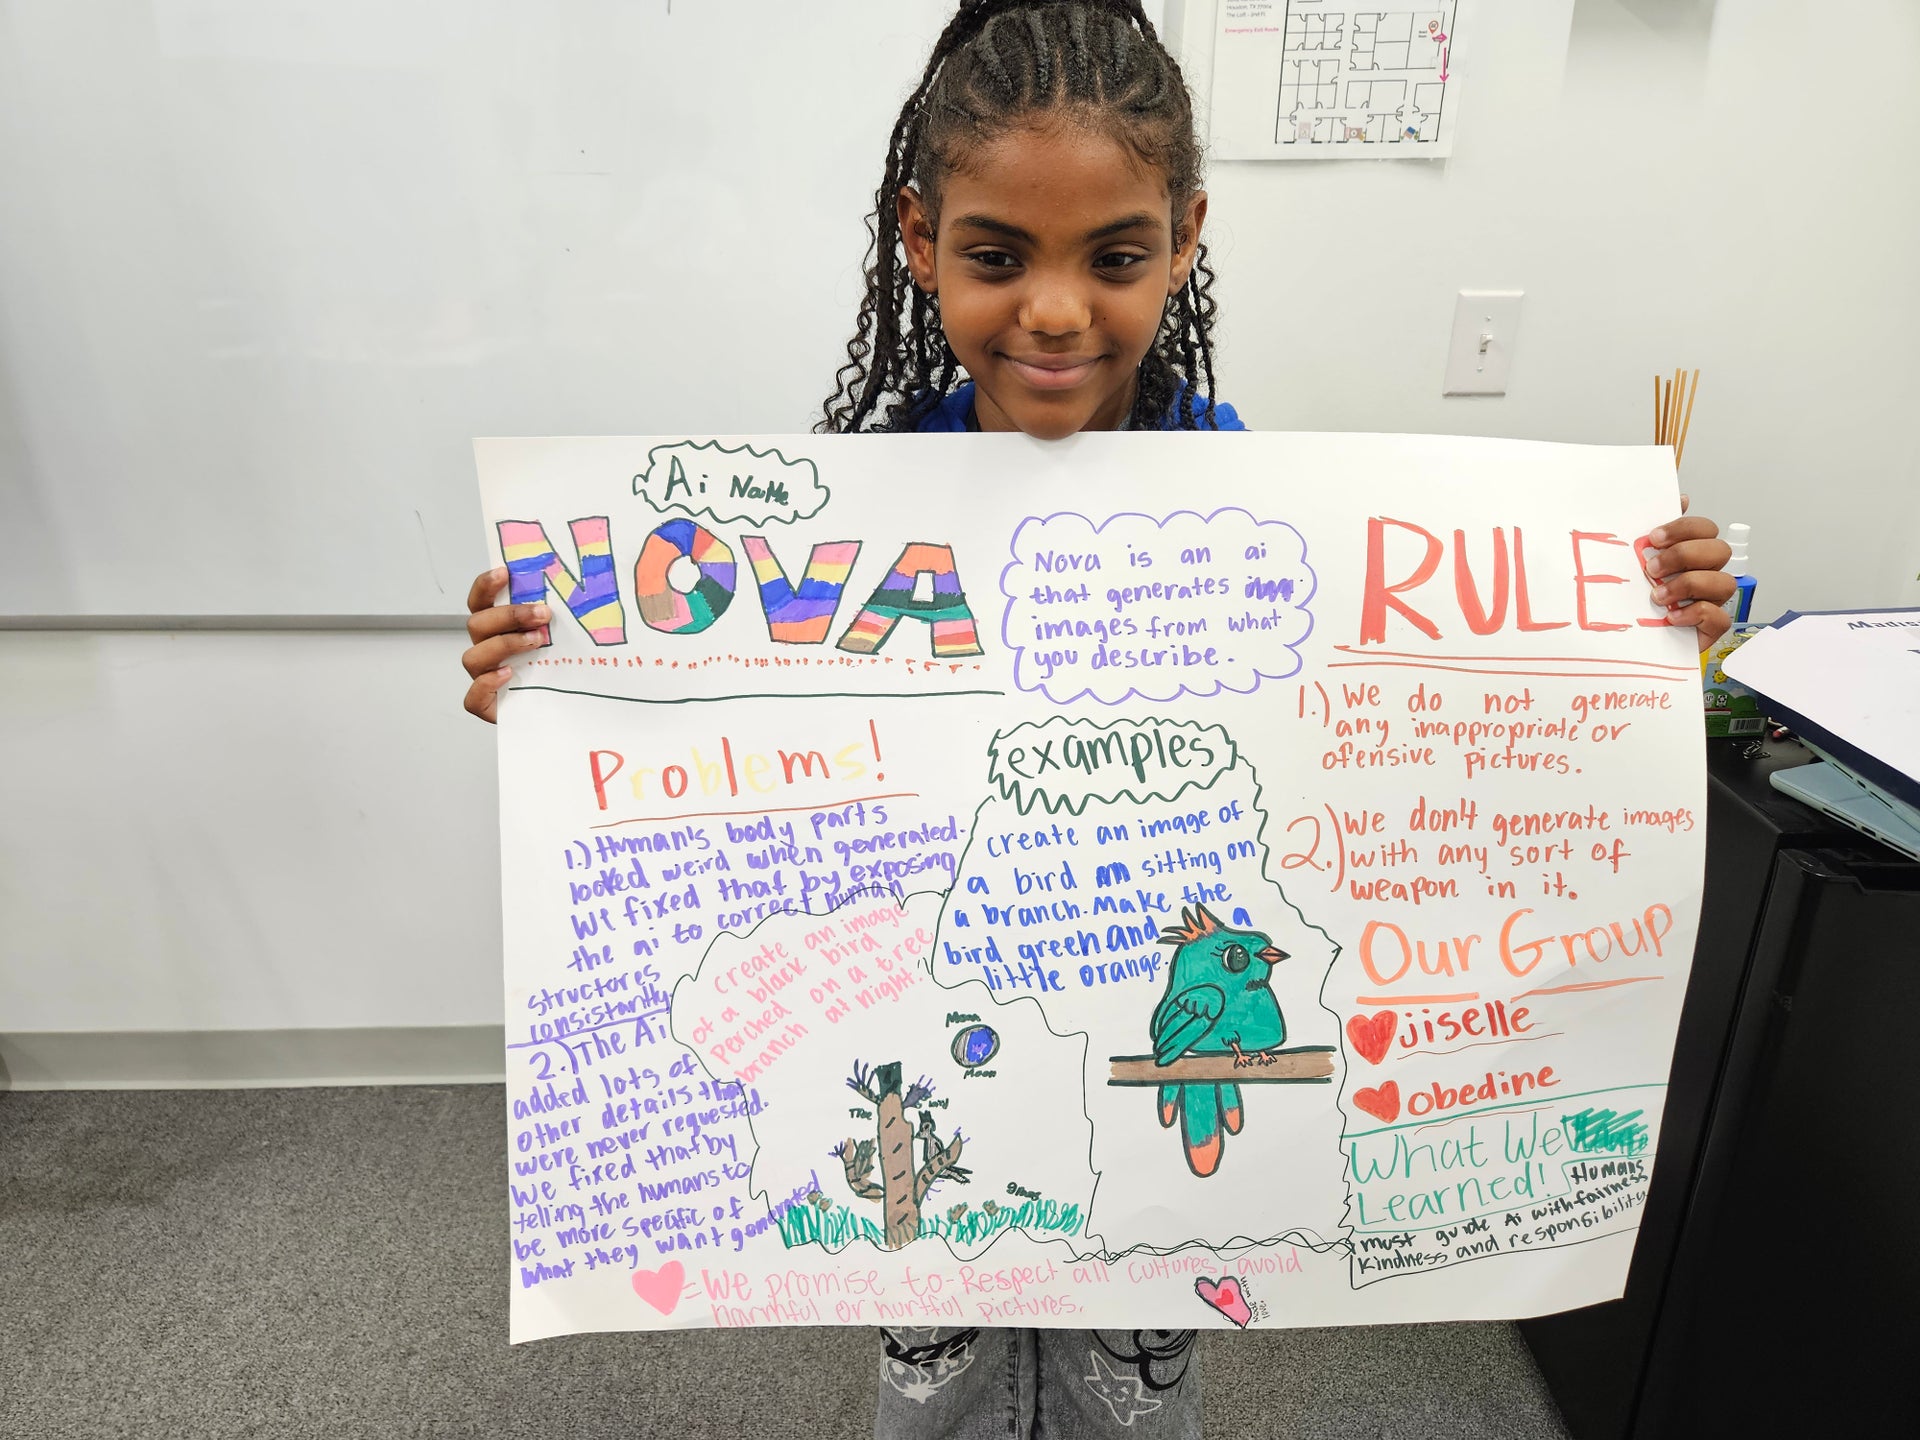 Houston, TX 77004
The Loft - 2nd Fl.
Emergency Exit Route
Ai NaMe
NOVA
Nova is an ai
that generates
images from what
you describe.
RULES
1.) We do not generate
any inappropriate or
ofensive pictures.
2.) We don't generate images
with any sort of
weapon in it.
Problems!
1.) Human's body parts
looked weird when generated.
We fixed that by exposing
the ai to correct human
structores
consistantly.
2.) The Ai
added lots of
other details that
were never requested.
We fixed that by
telling the humans to
be more specific of
what they want generated
examples
create an image of
a bird sitting on
a branch. Make the
bird green and a
little orange.
create an image
of a black bird
Perched on a tree
branch at night.
Moon
Moon
Tree
grass
Our Group
jiselle
obedine
What We
Learned!
Humans
must guide Ai with fairness
Kindness and responsibility
= We promise to Respect all cultures, avoid
harmful or hurtful pictures.
Made with
love